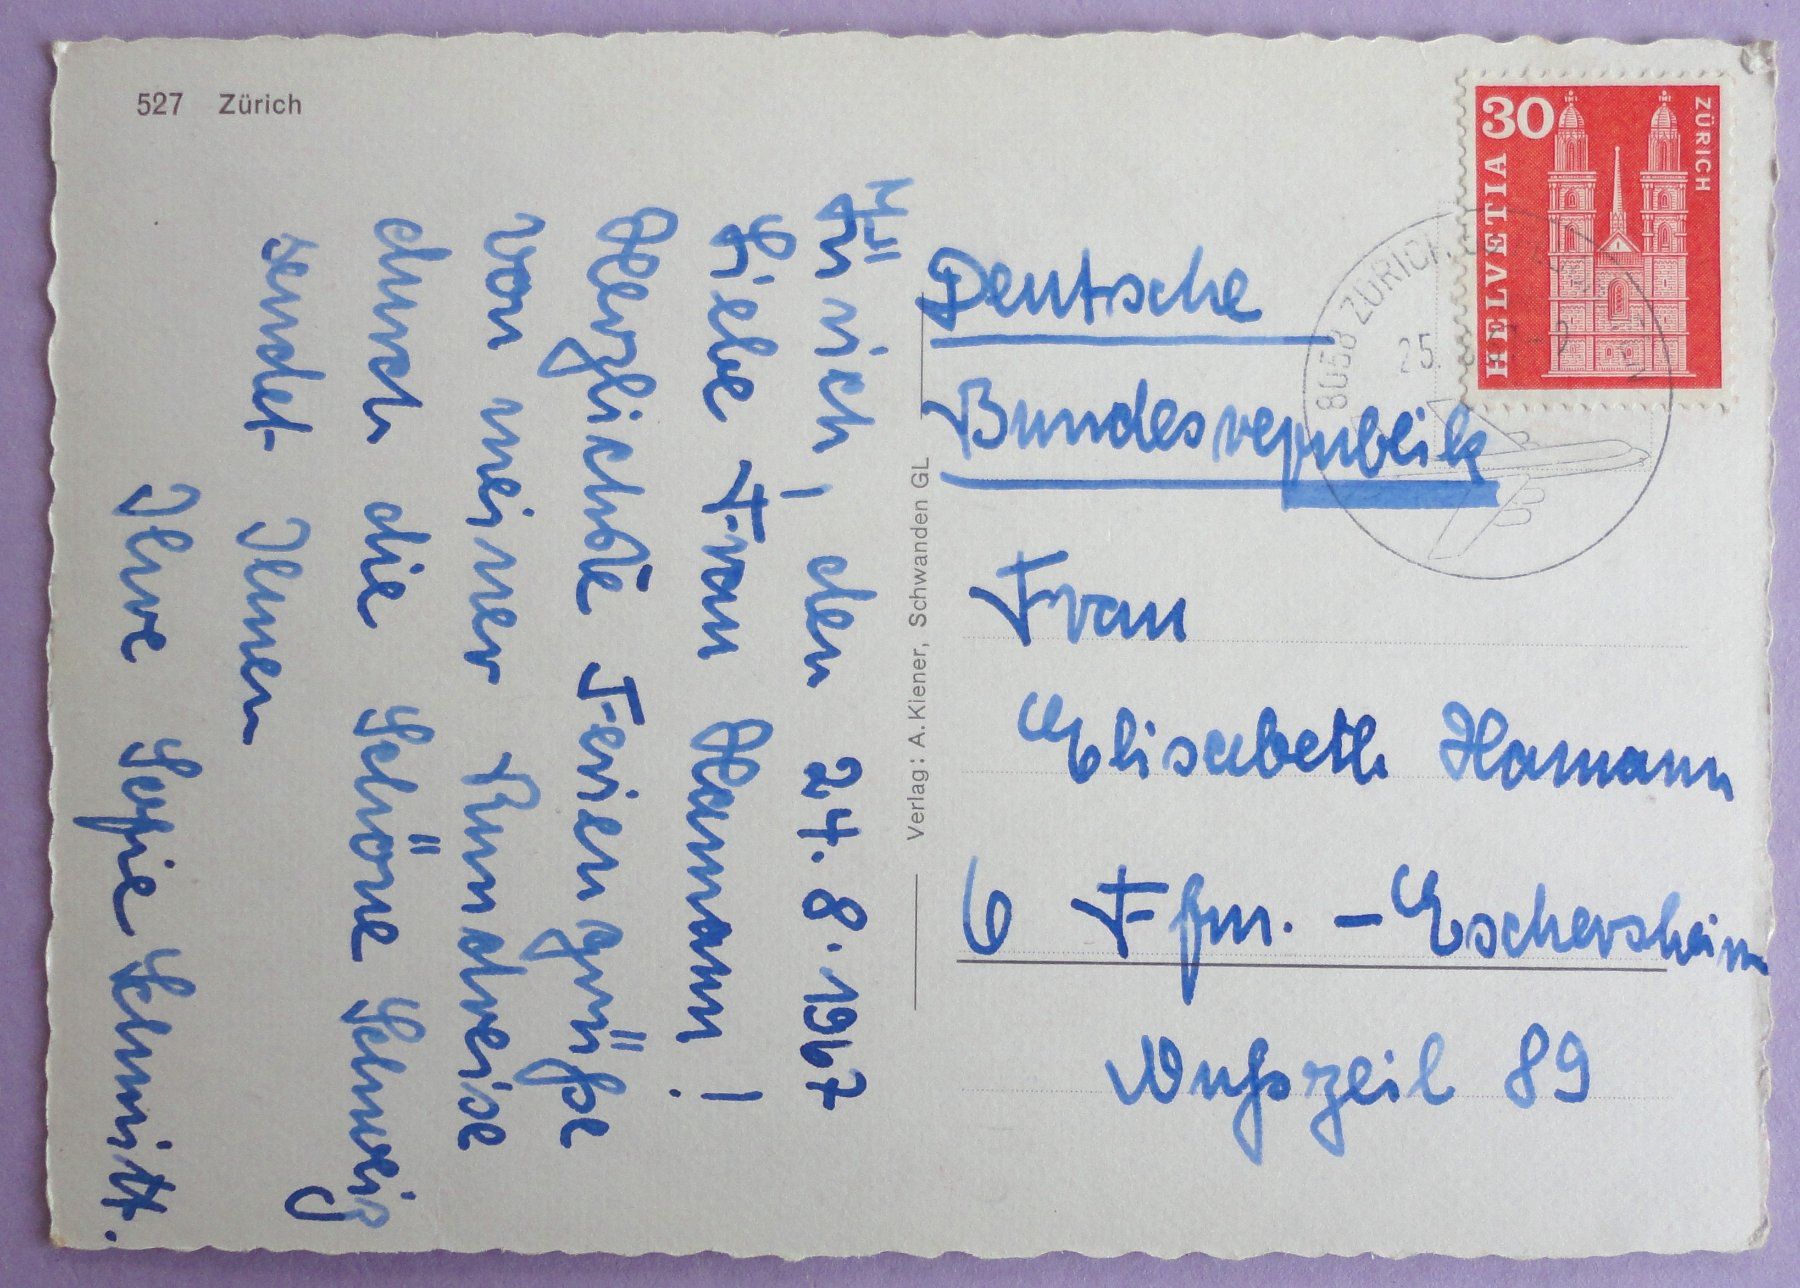 527 Zürich
Zürich, den 24. 8. 1967
Liebe Frau Hamann!
Herzlichste Feriengrüße
von meiner Rundreise
durch die Schöne Schweiz
sendet Ihnen
Ihre Sofie Schmitt.
Verlag: A. Kiener, Schwanden GL
30
HELVETIA
ZÜRICH
8058 ZÜRICH
25.
Deutsche
Bundesrepublik
Frau
Elisabeth Hamann
6 Ffm. - Eschersheim
Nußzeil 89